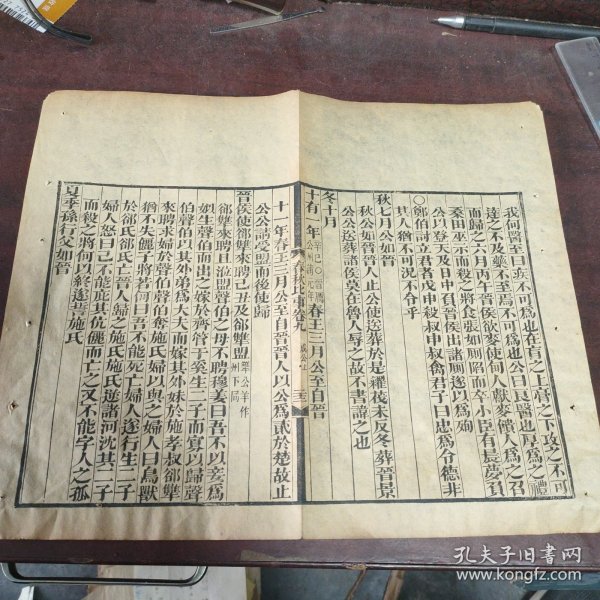 我何醫至曰疾不可爲也在肓之上膏之下攻之不可
達之不及藥不至焉不可爲也公曰良醫也厚爲之禮
而歸之六月丙午晉侯欲麥使甸人獻麥饋人爲之召
桑田巫示而殺之將食張如厠陷而卒小臣有晨夢負
公以登天及日中負晉侯出諸厠遂以爲殉
○鄭伯討立君者戊申殺叔申叔禽君子曰忠爲令德非
其人猶不可況不令乎
秋七月公如晉
秋公如晉晉人止公使送葬於是糴茷未反冬葬晉景
公公送葬諸侯莫在魯人辱之故不書諱之也
冬十月
十有一年春王三月公至自晉
十一年春王三月公至自晉晉人以公爲貳於楚故止
公公請受盟而後使歸
晉侯使郤犨來聘己丑及郤犨盟
郤犨來聘且涖盟聲伯之母不聘穆姜曰吾不以妾爲
姒生聲伯而出之嫁於齊管于奚生二子而寡以歸聲
伯聲伯以其外弟爲大夫而嫁其外妹於施孝叔郤犨
來聘求婦於聲伯聲伯奪施氏婦以與之婦人曰鳥獸
猶不失儷子將若何曰吾不能死亡婦人遂行生二子
於郤氏郤氏亡晉人歸之施氏施氏逆諸河沈其二子
婦人怒曰己不能庇其伉儷而亡之又不能字人之孤
而殺之將何以終遂誓施氏
夏季孫行父如晉
孔夫子旧书网
www.kongfz.com